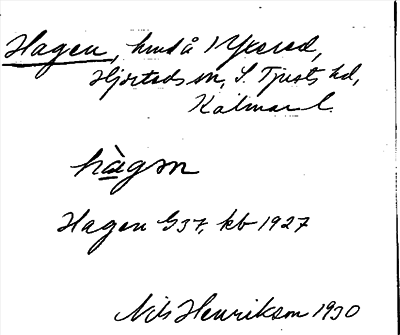 Hagen, hmd å Ykered,
Hjorteds sn, S. Tjusts hd,
Kalmar l.
hàgɘn
Hagen G37, kb 1927
Nils Henrikson 1930